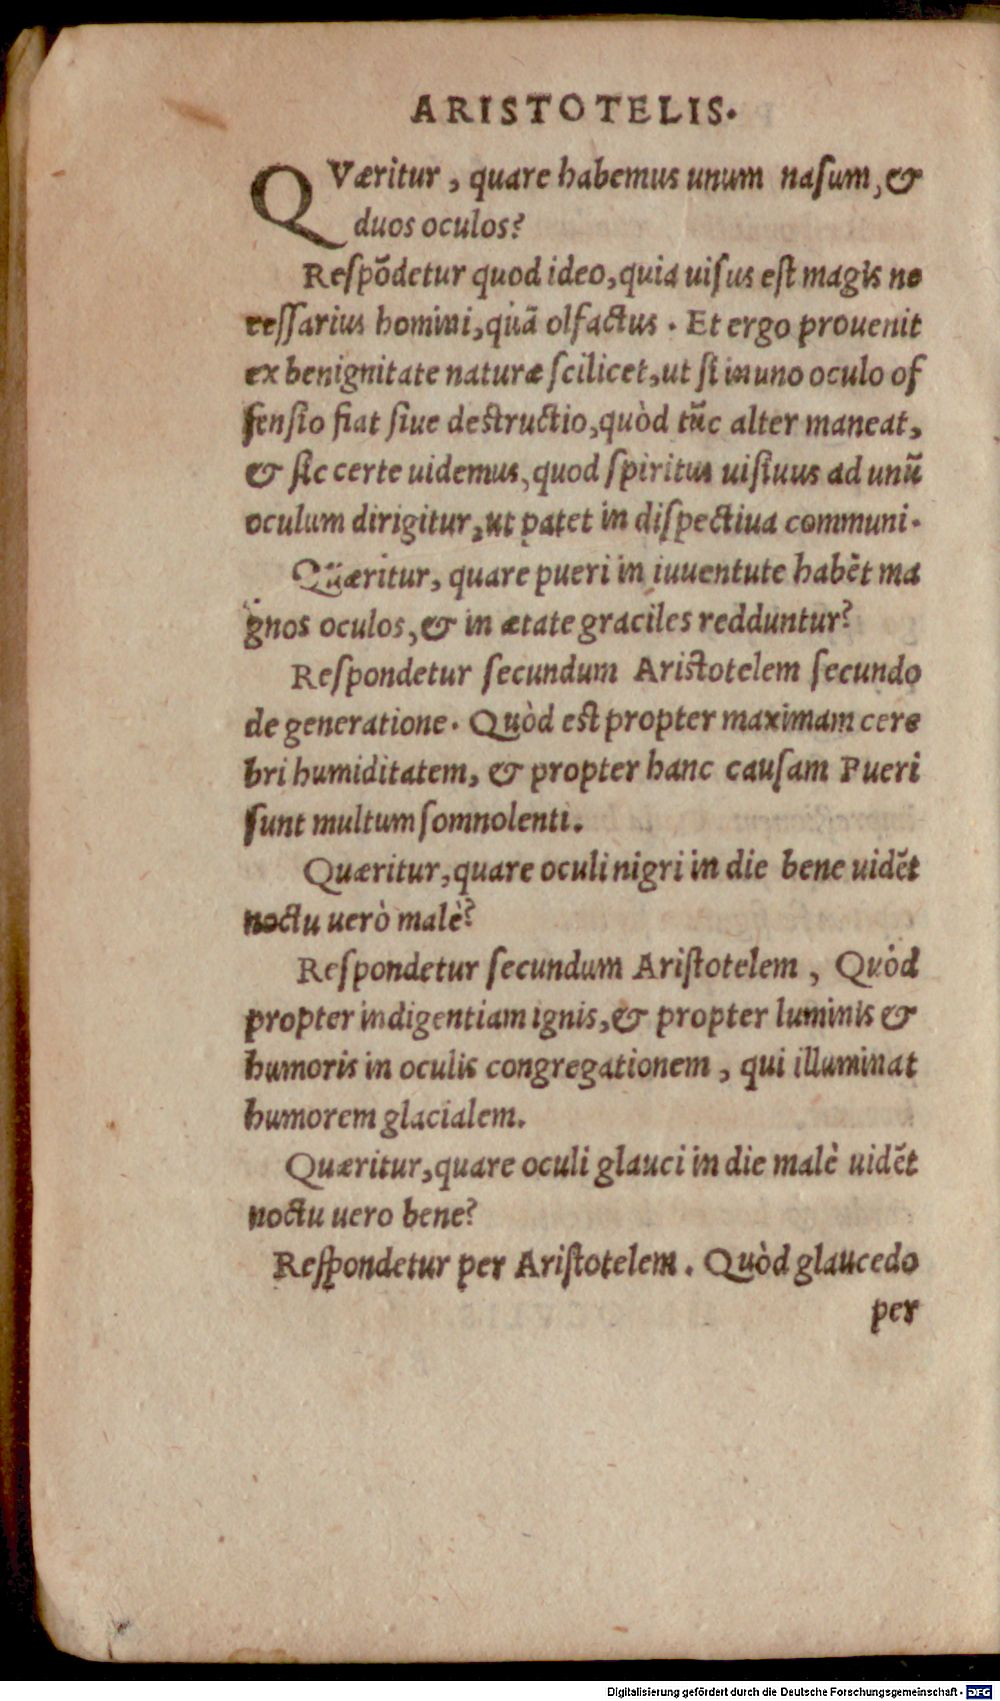 ARISTOTELIS.
QVæritur, quare habemus unum nasum, &
duos oculos?
Respõdetur quod ideo, quia uiſus est magis ne
ceſſarius homini, quã olfactus. Et ergo prouenit
ex benignitate naturæ ſcilicet, ut ſi in uno oculo of
fenſio fiat ſiue destructio, quòd tũc alter maneat,
& ſic certe uidemus, quod ſpiritus uiſiuus ad unũ
oculum dirigitur, ut patet in diſpectiua communi.
Quæritur, quare pueri in iuuentute habẽt ma
gnos oculos, & in ætate graciles redduntur?
Reſpondetur ſecundum Aristotelem ſecundo
de generatione. Quòd est propter maximam cere
bri humiditatem, & propter hanc cauſam Pueri
ſunt multum ſomnolenti.
Quæritur, quare oculi nigri in die bene uidẽt
noctu uerò malè?
Reſpondetur ſecundum Ariſtotelem, Quòd
propter indigentiam ignis, & propter luminis &
humoris in oculis congregationem, qui illuminat
humorem glacialem.
Quæritur, quare oculi glauci in die malè uidẽt
noctu uero bene?
Reſpondetur per Ariſtotelem. Quòd glaucedo
per
Digitalisierung gefördert durch die Deutsche Forschungsgemeinschaft - DFG